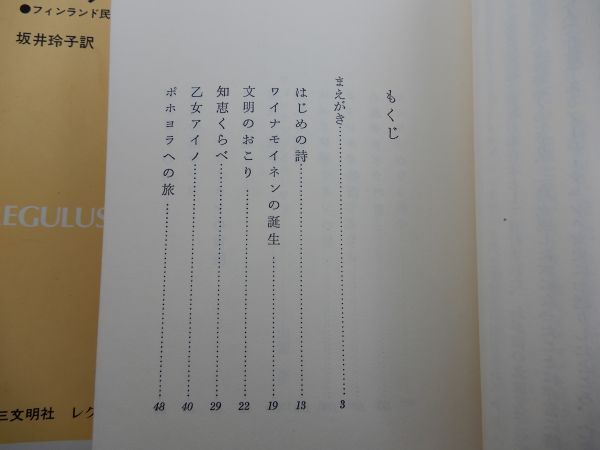 もくじ
まえがき 3
はじめの詩 13
ワイナモイネンの誕生 19
文明のおこり 22
知恵くらべ 29
乙女アイノ 40
ポホヨラへの旅 48
●フィンランド民
坂井玲子訳
EGULUS
三文明社 レク